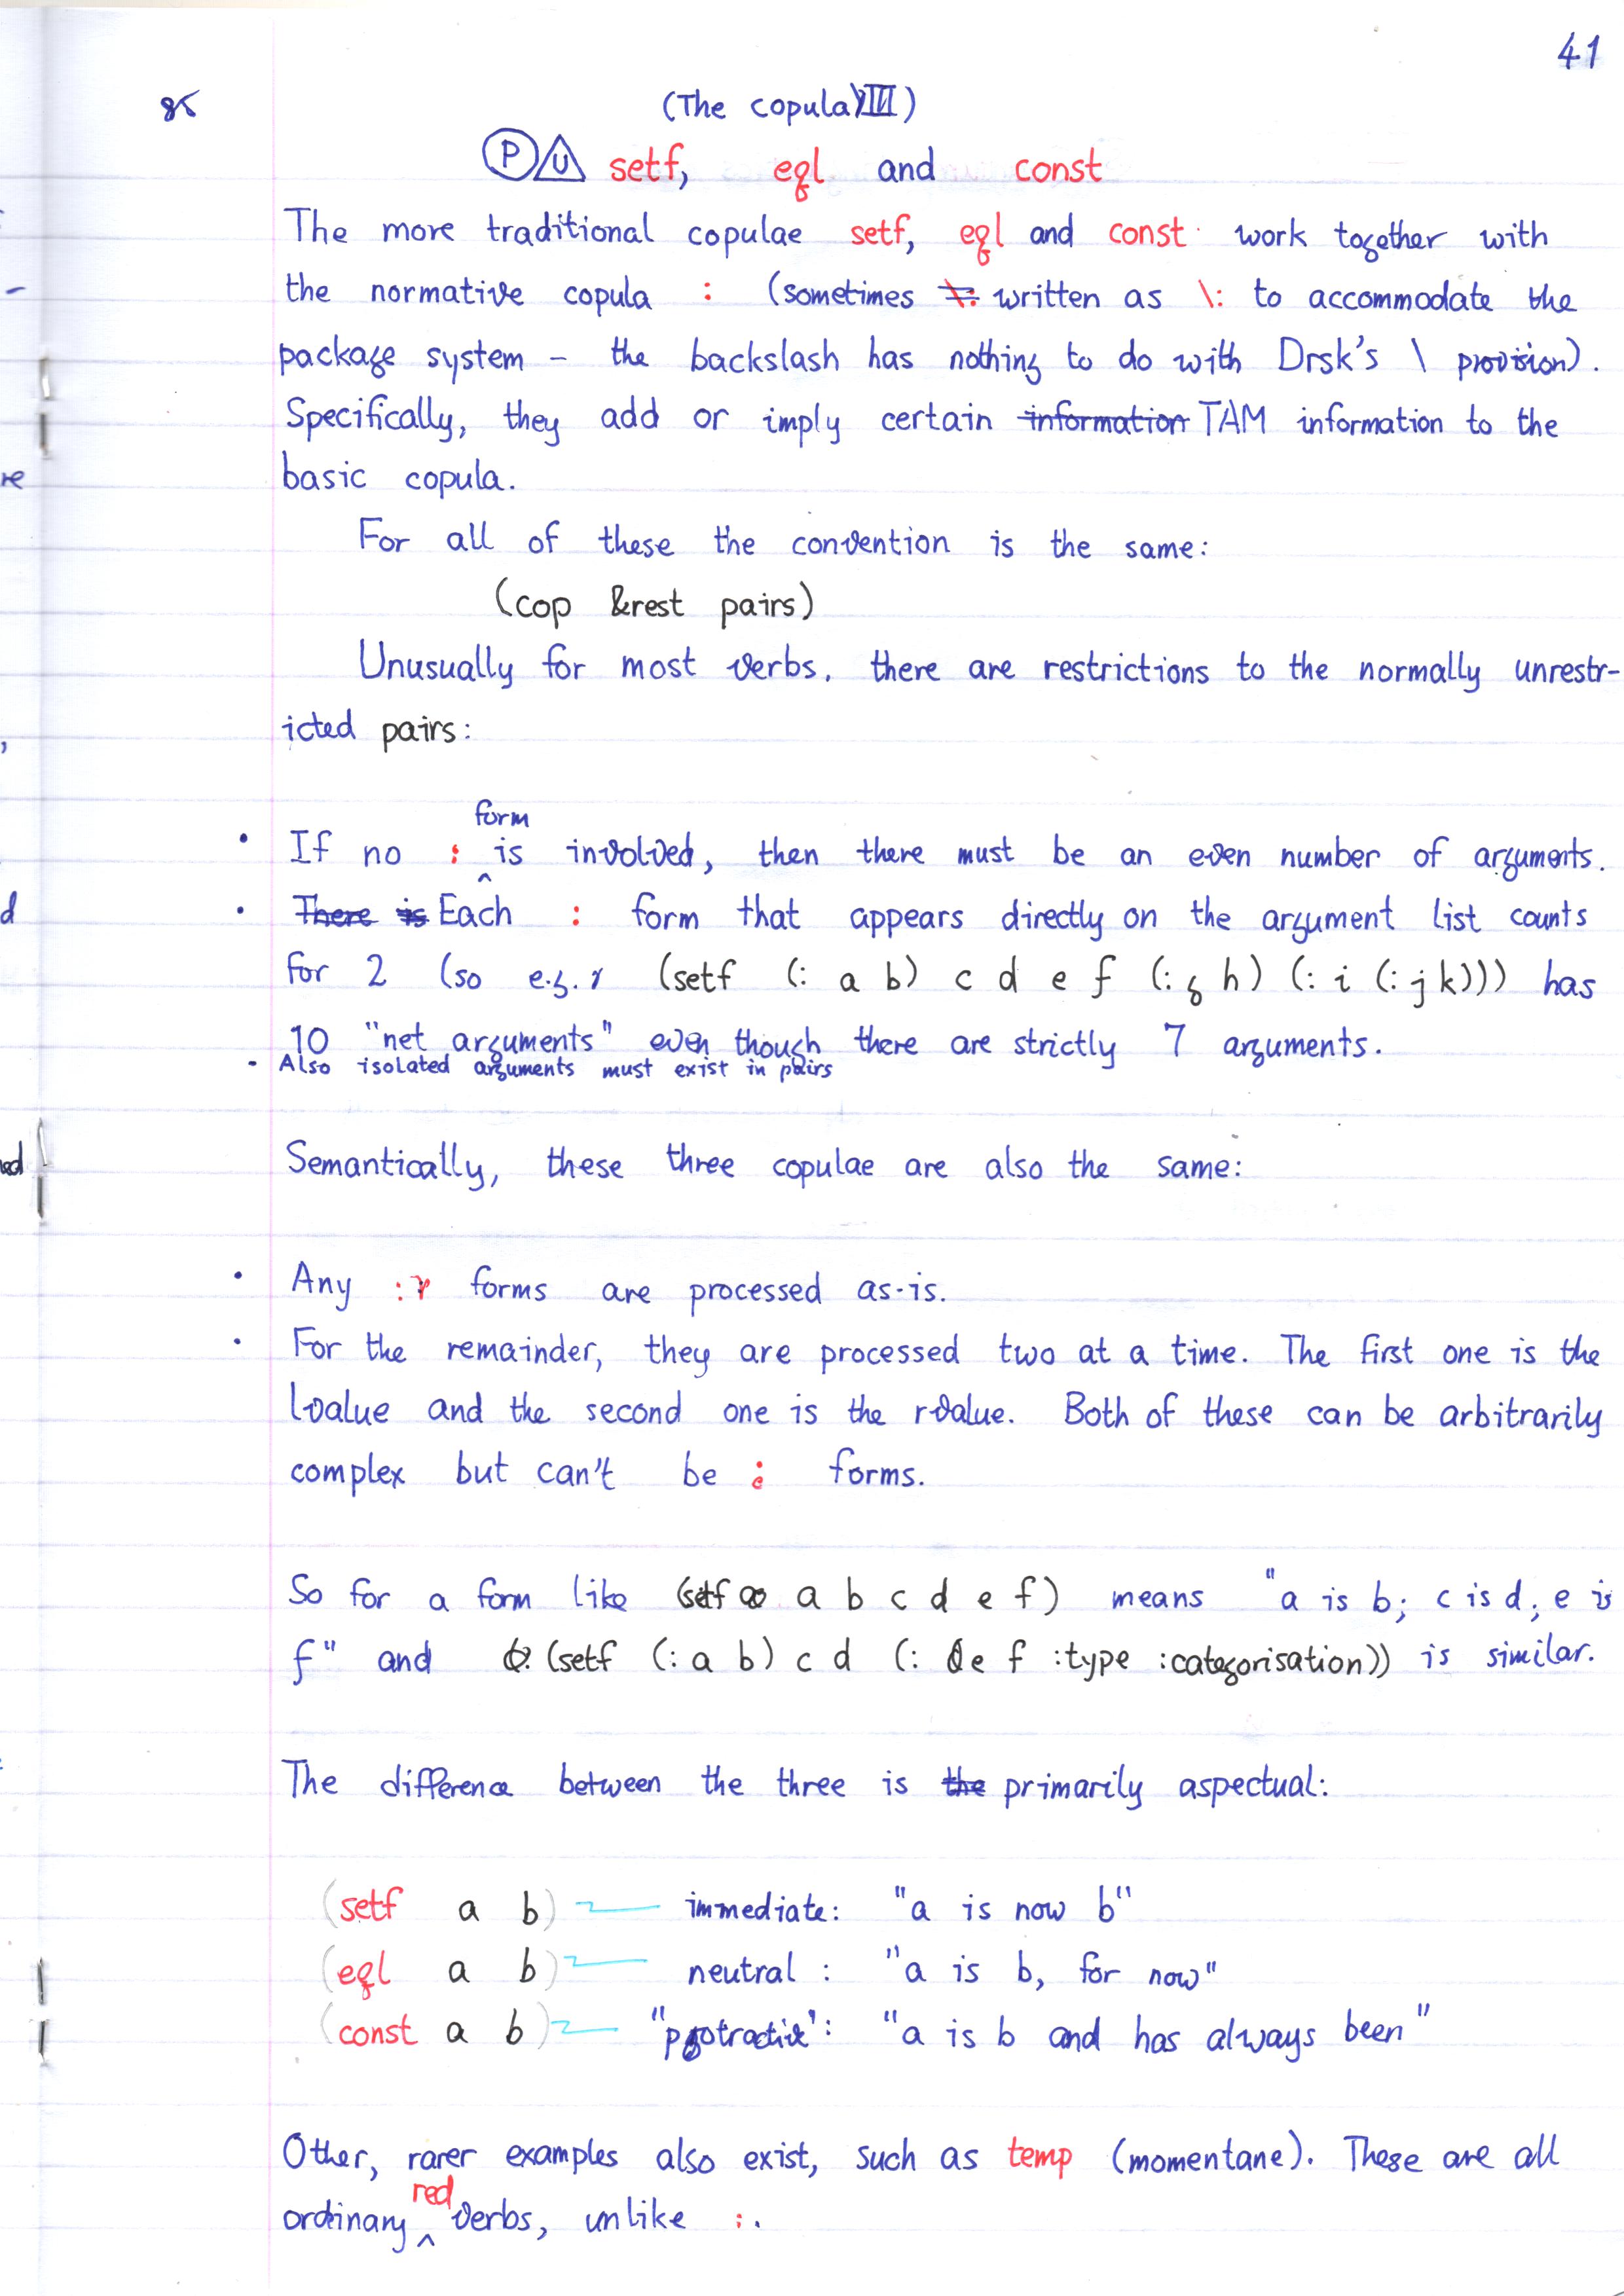 41
85 (The copula VIII)
P U setf, eql and const
The more traditional copulae setf, eql and const work together with
the normative copula : (sometimes written as \: to accommodate the
package system – the backslash has nothing to do with Drsk's \ provision).
Specifically, they add or imply certain information TAM information to the
basic copula.
For all of these the convention is the same:
(cop &rest pairs)
Unusually for most verbs, there are restrictions to the normally unrestr-
icted pairs:
form
• If no : is involved, then there must be an even number of arguments.
• There is Each : form that appears directly on the argument list counts
for 2 (so e.g. (setf (: a b) c d e f (: g h) (: i (: j k))) has
10 "net arguments" even though there are strictly 7 arguments.
- Also isolated arguments must exist in pairs
Semantically, these three copulae are also the same:
• Any : forms are processed as-is.
• For the remainder, they are processed two at a time. The first one is the
lvalue and the second one is the rvalue. Both of these can be arbitrarily
complex but can't be : forms.
So for a form like (setf a b c d e f) means "a is b; c is d; e is
f" and (setf (: a b) c d (: e f :type :categorisation)) is similar.
The difference between the three is the primarily aspectual:
(setf a b) immediate: "a is now b"
(eql a b) neutral : "a is b, for now"
(const a b) "protractive": "a is b and has always been"
Other, rarer examples also exist, such as temp (momentane). These are all
red
ordinary ^ verbs, unlike :.